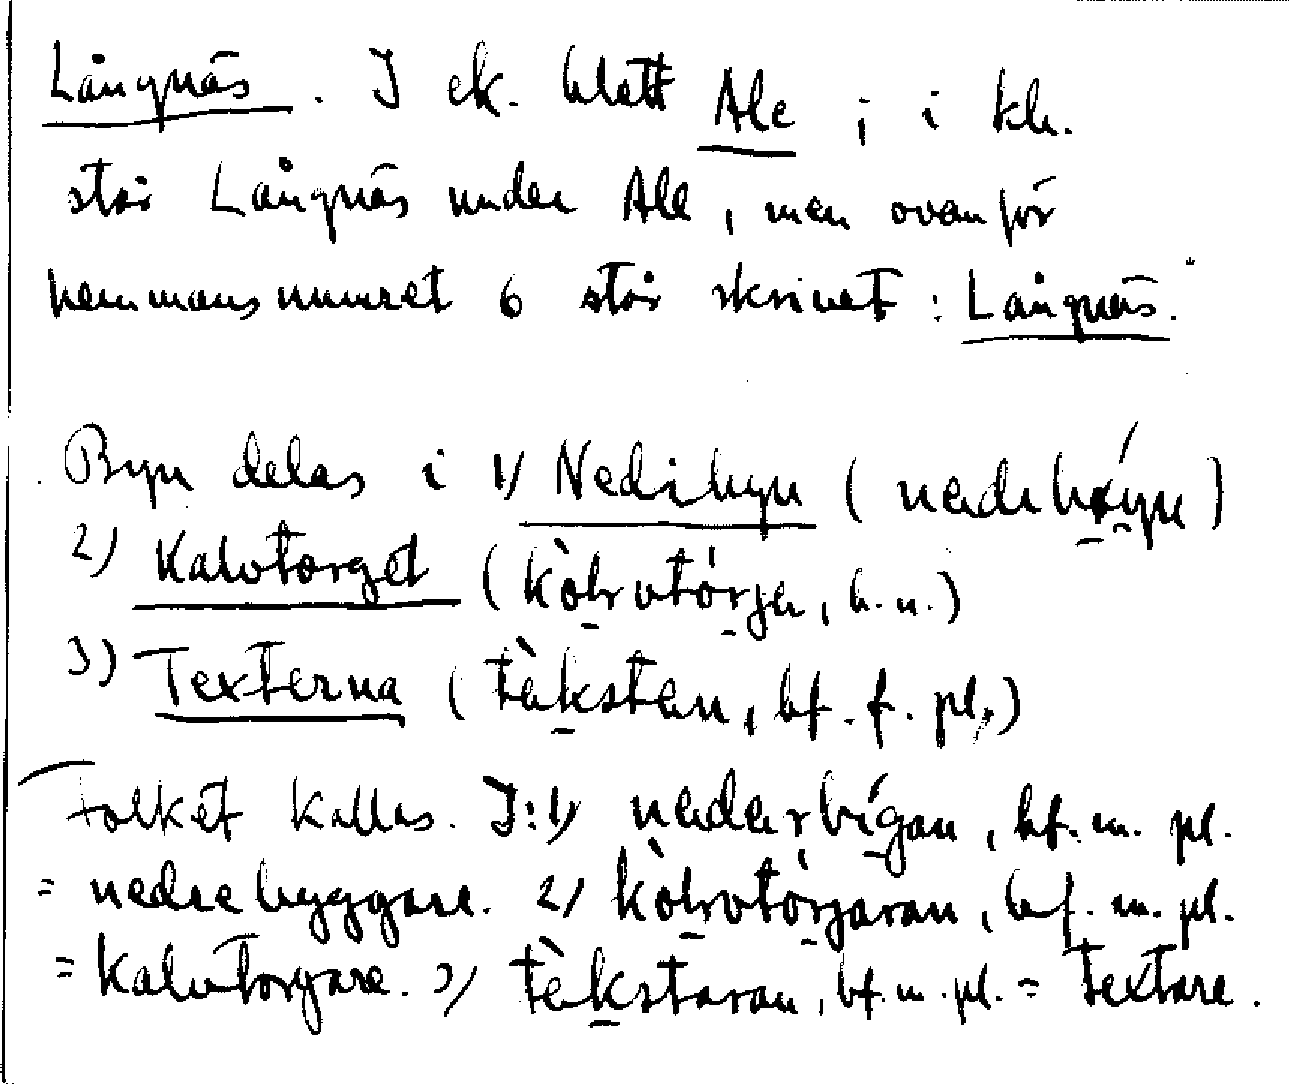 Långnäs. I ek. blatt Ale ; i kh.
står Långnäs under Ale, men ovanför
hemmansnumret 6 står skrivet : Långnäs.
Byn delas i 1) Nedibyn (
2) Kalvtorget (kòlvtórje, b. n.)
3) Texterna (tèkstan, bf. f. pl.)
Folket kallas. I:1) nedarbígan, bf. m. pl.
= nedrebyggare. 2) kòlvtórjaran, bf. m. pl.
= kalvtorgare. 3) tèkstaran, bf. m. pl. = textare.